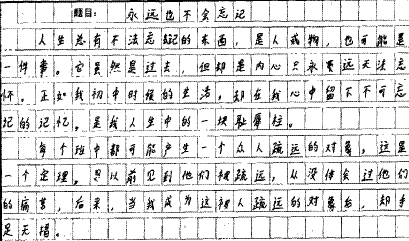 题目：永远也不会忘记
人生总有不法忘记的东西，是人或物，也可能是
一件事。它虽然是过去，但却是内心永远无法忘
怀。正如我初中时候的生活，却在我心中留下不可忘
记的记忆。是我人生中的一块耻辱柱。
每个班中都可能产生一个众人疏远的对象，这是
一个定理。只以前见到他们被疏远，从没体会过他们
的痛苦，后来，当我成为这被人疏远的对象后，却手
足无措。